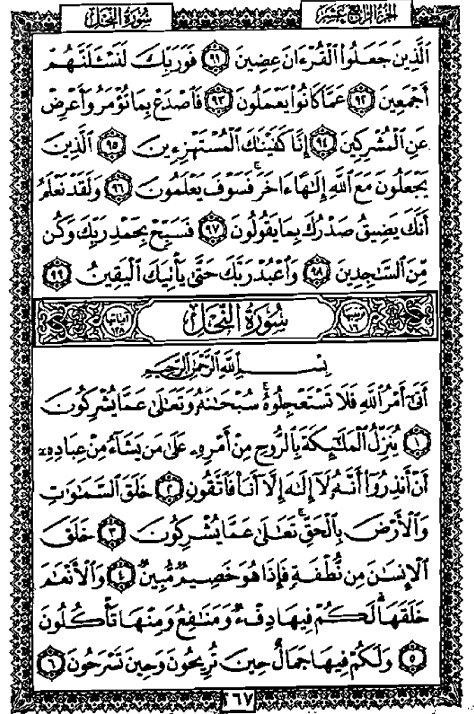 سُورَةُ النَّحْلِ
الجزء الرابع عشر
ٱلَّذِينَ جَعَلُوا۟ ٱلْقُرْءَانَ عِضِينَ ٩١ فَوَرَبِّكَ لَنَسْـَٔلَنَّهُمْ
أَجْمَعِينَ ٩٢ عَمَّا كَانُوا۟ يَعْمَلُونَ ٩٣ فَٱصْدَعْ بِمَا تُؤْمَرُ وَأَعْرِضْ
عَنِ ٱلْمُشْرِكِينَ ٩٤ إِنَّا كَفَيْنَٰكَ ٱلْمُسْتَهْزِءِينَ ٩٥ ٱلَّذِينَ
يَجْعَلُونَ مَعَ ٱللَّهِ إِلَٰهًا ءَاخَرَ ۚ فَسَوْفَ يَعْلَمُونَ ٩٦ وَلَقَدْ نَعْلَمُ
أَنَّكَ يَضِيقُ صَدْرُكَ بِمَا يَقُولُونَ ٩٧ فَسَبِّحْ بِحَمْدِ رَبِّكَ وَكُن
مِّنَ ٱلسَّٰجِدِينَ ٩٨ وَٱعْبُدْ رَبَّكَ حَتَّىٰ يَأْتِيَكَ ٱلْيَقِينُ ٩٩
سُورَةُ النَّحْلِ
بِسْمِ ٱللَّهِ ٱلرَّحْمَٰنِ ٱلرَّحِيمِ
أَتَىٰٓ أَمْرُ ٱللَّهِ فَلَا تَسْتَعْجِلُوهُ ۚ سُبْحَٰنَهُۥ وَتَعَٰلَىٰ عَمَّا يُشْرِكُونَ
١ يُنَزِّلُ ٱلْمَلَٰٓئِكَةَ بِٱلرُّوحِ مِنْ أَمْرِهِۦ عَلَىٰ مَن يَشَآءُ مِنْ عِبَادِهِۦٓ
أَنْ أَنذِرُوٓا۟ أَنَّهُۥ لَآ إِلَٰهَ إِلَّآ أَنَا۠ فَٱتَّقُونِ ٢ خَلَقَ ٱلسَّمَٰوَٰتِ
وَٱلْأَرْضَ بِٱلْحَقِّ ۚ تَعَٰلَىٰ عَمَّا يُشْرِكُونَ ٣ خَلَقَ
ٱلْإِنسَٰنَ مِن نُّطْفَةٍ فَإِذَا هُوَ خَصِيمٌ مُّبِينٌ ٤ وَٱلْأَنْعَٰمَ
خَلَقَهَا ۗ لَكُمْ فِيهَا دِفْءٌ وَمَنَٰفِعُ وَمِنْهَا تَأْكُلُونَ
٥ وَلَكُمْ فِيهَا جَمَالٌ حِينَ تُرِيحُونَ وَحِينَ تَسْرَحُونَ ٦